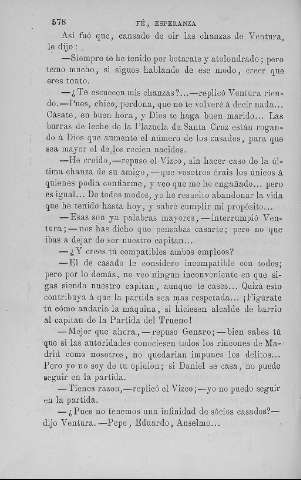 578 FÉ, ESPERANZA
Así fué que, cansado de oir las chanzas de Ventura,
le dijo:
—Siempre te he tenido por botarate y atolondrado; pero
temo mucho, si sigues hablando de ese modo, creer que
eres tonto.
—¿Te escuecen mis chanzas?...—replicó Ventura rien-
do.—Pues, chico, perdona, que no te volveré á decir nada...
Cásate, en buen hora, y Dios te haga buen marido... Las
burras de leche de la Plazuela de Santa Cruz están rogan-
do á Dios que aumente el número de los casados, para que
sea mayor el de los recien nacidos.
—He creido,—repuso el Vizco, sin hacer caso de la úl-
tima chanza de su amigo,—que vosotros érais los únicos á
quienes podia confiarme, y veo que me he engañado... pero
es igual... De todos modos, yo he resuelto abandonar la vida
que he tenido hasta hoy, y sabré cumplir mi propósito...
—Esas son ya palabras mayores,—interrumpió Ven-
tura;—nos has dicho que pensabas casarte; pero no que
ibas á dejar de ser nuestro capitan...
—¿Y crees tú compatibles ambos empleos?
—El de casado le considero incompatible con todos;
pero por lo demás, no veo ningun inconveniente en que si-
gas siendo nuestro capitan, aunque te cases... Quizá esto
contribuya á que la partida sea mas respetada... ¡Figúrate
tú cómo andaria la máquina, si hiciesen alcalde de barrio
al capitan de la Partida del Trueno!
—Mejor que ahora,—repuso Genaro;—bien sabes tú
que si las autoridades conociesen todos los rincones de Ma-
drid como nosotros, no quedarian impunes los delitos...
Pero yo no soy de tu opinion; si Daniel se casa, no puede
seguir en la partida.
—Tienes razon,—replicó el Vizco;—yo no puedo seguir
en la partida.
—¿Pues no tenemos una infinidad de sócios casados?—
dijo Ventura.—Pepe, Eduardo, Anselmo...